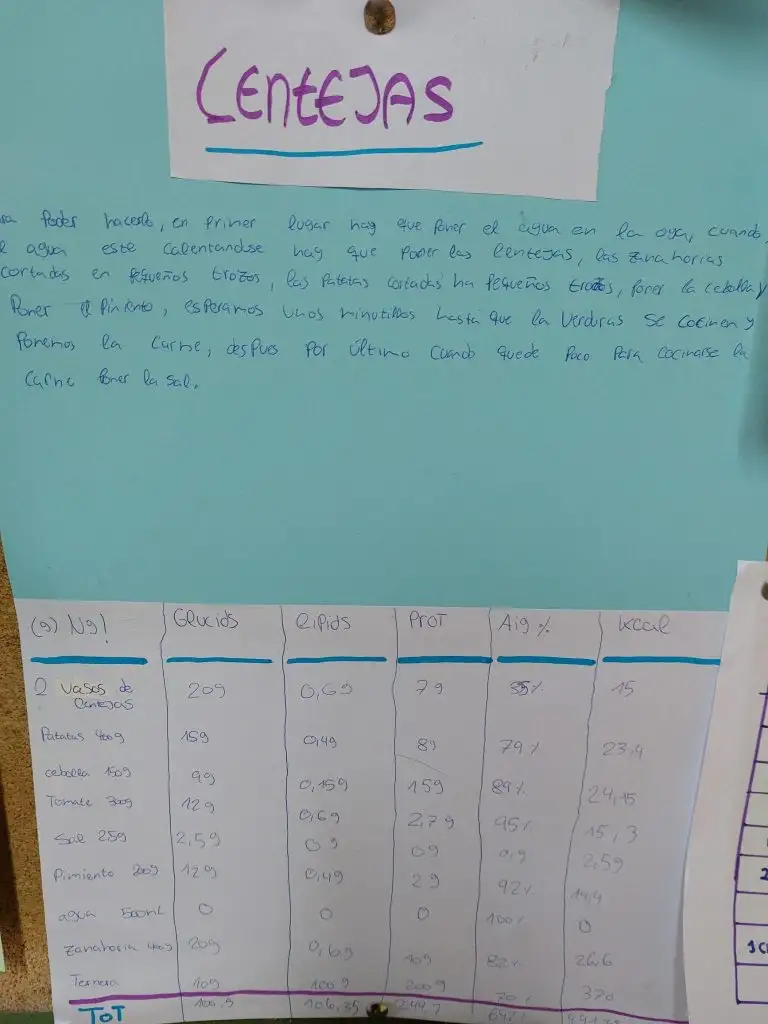 LENTEJAS
Poder hacerlo, en primer lugar hay que poner el agua en la oya, cuando
agua este calentandose hay que poner las lentejas, las zanahorias
cortadas en pequeños trozos, las patatas cortadas ha pequeños trozos, poner la cebolla y
Poner el pimiento, esperamos unos minutillos hasta que la verduras se cocinen y
Ponemos la carne, despues por último cuando quede poco para cocinarse la
carne poner la sal.
(g) Ng! Glucids lipids Prot Aig % Kcal
2 vasos de lentejas 20g 0,6g 7g 15
Patatas 400g 15g 0,4g 8g 79% 23,4
cebolla 150g 9g 0,15g 15g 89% 24,15
Tomate 300g 12g 0,6g 2,7g 95% 15,3
Sal 25g 2,5g 0g 0g 2,59
Pimiento 200g 12g 0,4g 2g 92% 14,4
agua 500mL 0 0 0 100% 0
Zanahoria 400g 20g 82% 26,6
Ternera 10g 100g 200g 70% 370
TOT 106,35